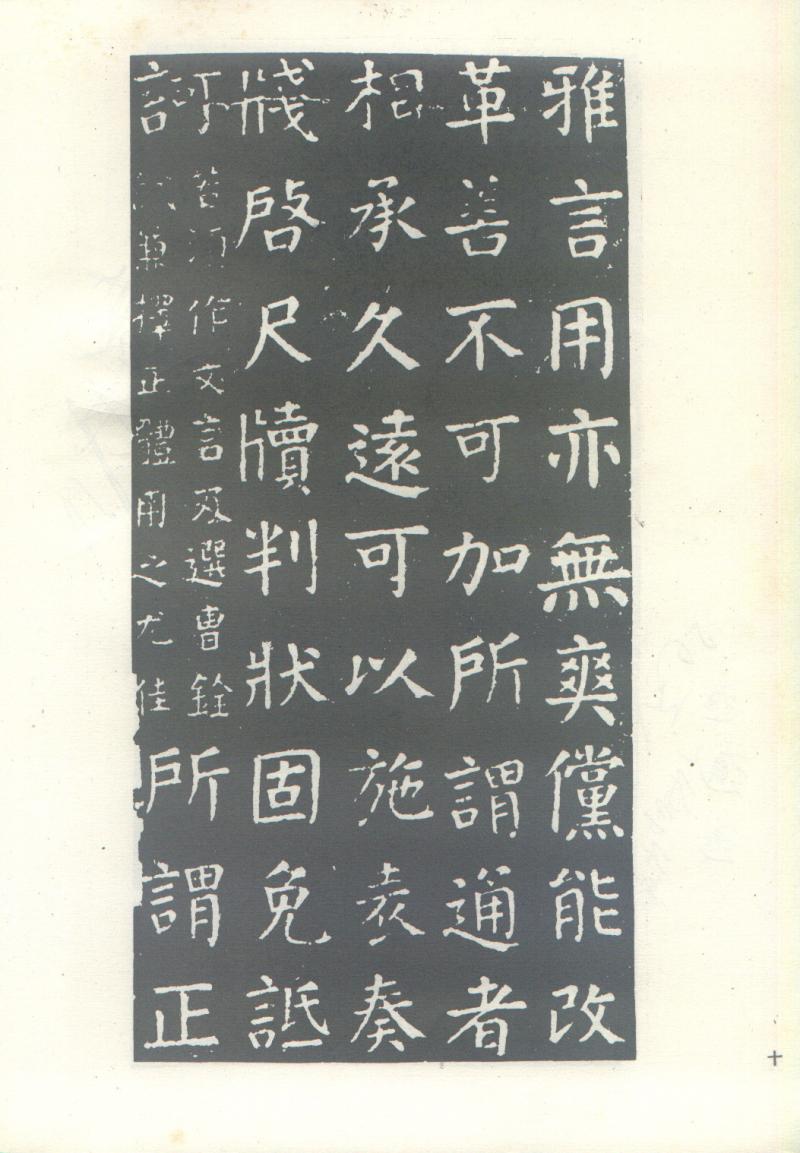 雅言用亦無爽儻能改
革善不可加所謂通者
相承久遠可以施表奏
牋啓尺牘判狀固免詆
訶
若須作文言及選曹銓
試兼擇正體用之尤佳
所謂正
十